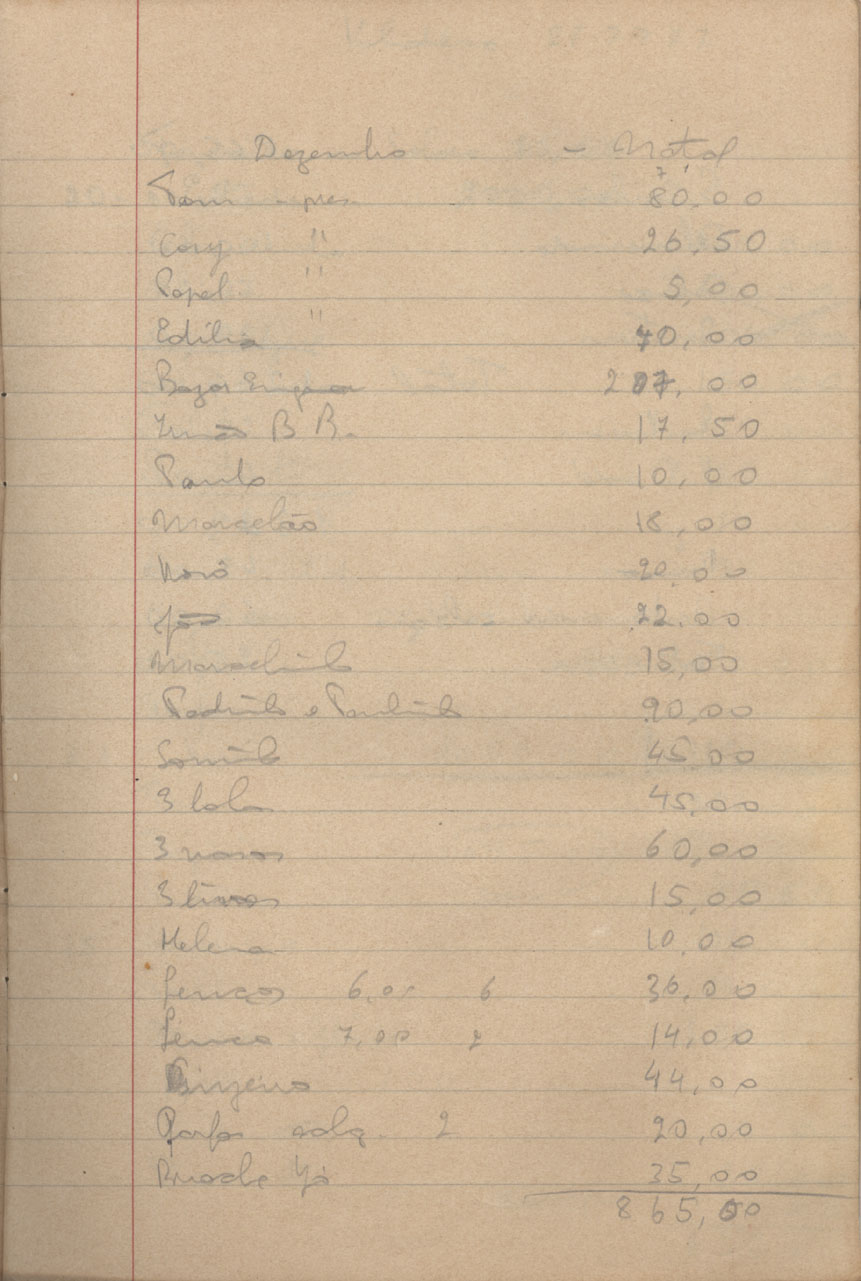 Dezembro - Natal
Tom - pres. 80,00
Cory " 26,50
Papel " 5,00
Edília " 70,00
Bazar 207,00
Irmão B B. 17,50
Paulo 10,00
Marcelão 18,00
Norô 20,00
João 22,00
15,00
Pedrinho e Paulinho 90,00
Soninho 45,00
3 bolas 45,00
3 vasos 60,00
3 livros 15,00
Helena 10,00
Lenços 6,00 6 36,00
Lenço 7,00 2 14,00
44,00
Garfos salg. 2 20,00
Broche Yá 35,00
865,50